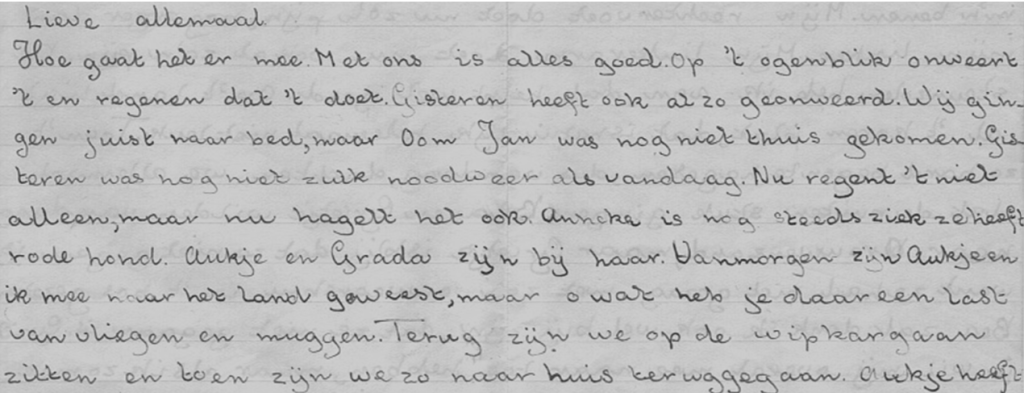 Lieve allemaal
Hoe gaat het er mee. Met ons is alles goed. Op 't ogenblik onweert
't en regenen dat 't doet. Gisteren heeft ook al zo geonweerd. Wij gin-
gen juist naar bed, maar Oom Jan was nog niet thuis gekomen. Gis
teren was nog niet zulk noodweer als vandaag. Nu regent 't niet
alleen, maar nu hagelt het ook. Anneke is nog steeds ziek ze heeft
rode hond. Aukje en Grada zijn bij haar. Vanmorgen zijn Aukje en
ik mee naar het land geweest, maar o wat heb je daar een last
van vliegen en muggen. Terug zijn we op de wipkar gaan
zitten en toen zijn we zo naar huis teruggegaan. Aukje heeft